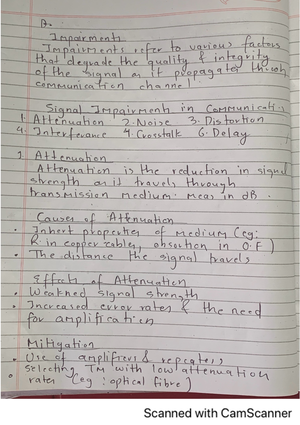 A.
Impairments
Impairments refer to various factors
that degrade the quality & integrity
of the signal as it propagates through
communication channel.
Signal Impairment in Communicati
1. Attenuation 2. Noise 3. Distortion
4. Interferance 4. Crosstalk 6. Delay
1. Attenuation
Attenuation is the reduction in signal
strength as it travels through
transmission medium. meas in dB.
Causes of Attenuation
• Inhert properties of medium (eg:
R in copper cables, absortion in O.F)
• The distance the signal travels
Effects of Attenuation
• Weakned signal strength
• Increased error rates & the need
for amplification
Mitigation
• Use of amplifiers & repeaters
• selecting TM with low attenuation
rates (eg: optical fibre)
Scanned with CamScanner